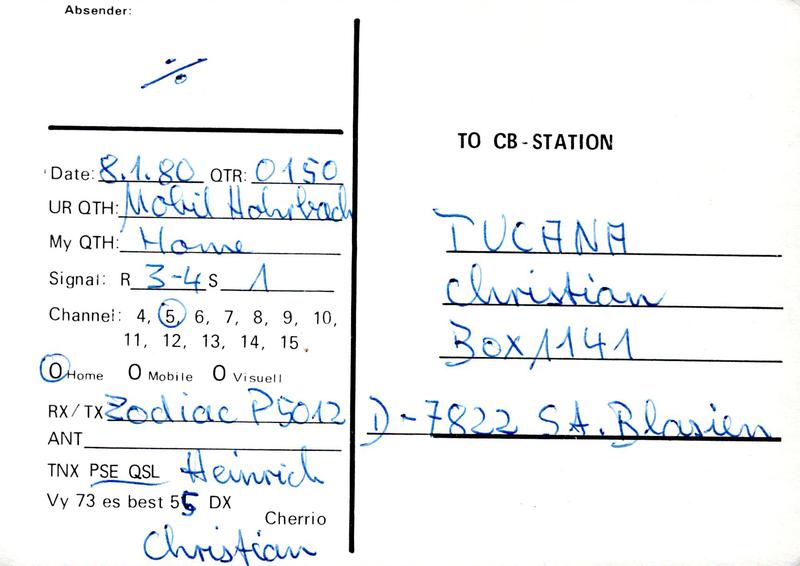 Absender:
./.
Date: 8.1.80 QTR: 0150
UR QTH: Mobil Hohrbach
My QTH: Home
Signal: R 3-4 S 1
Channel: 4, 5, 6, 7, 8, 9, 10,
11, 12, 13, 14, 15.
O Home O Mobile O Visuell
RX/TX Zodiac P5012
ANT
TNX PSE QSL Heinrich
Vy 73 es best 55 DX
Cherrio
Christian
TO CB-STATION
TUCANA
Christian
Box 1141
D-7822 St. Blasien